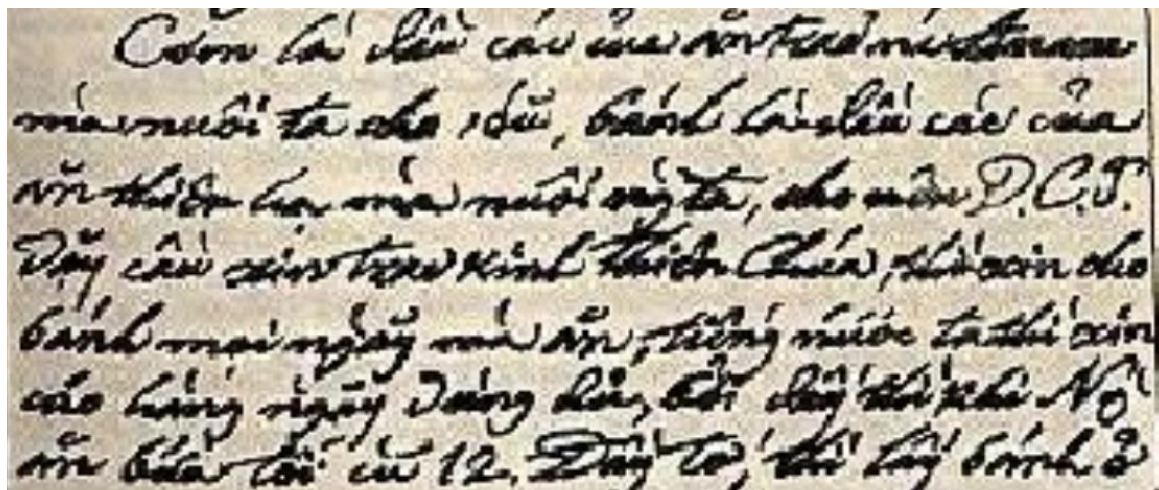 Cơm là dấu các của ăn trao nước Annam
mà nuôi ta cho sóũ, bánh là dấu các của
ăn thiên hạ mà nuôi ngta, cho nên D.C.J.
Dậy cầu xin trao kinh thiên Chúa, thì xin cho
bánh mọi ngày mà ăn, tiếng nước ta thì xin
cho hàng ngày dùng đủ, bởi đấy thì khi Ng̃
ăn bữa tối cũ 12. Đầy tớ, thì lấy bánh ở